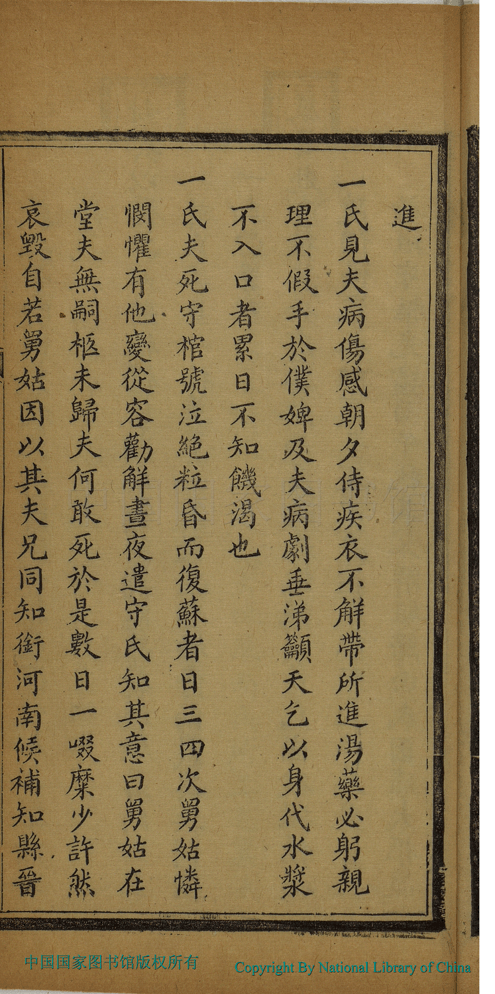 進
一氏見夫病傷感朝夕侍疾衣不解帶所進湯藥必躬親
理不假手於僕婢及夫病劇垂涕籲天乞以身代水漿
不入口者累日不知饑渴也
一氏夫死守棺號泣絶粒昏而復蘇者日三四次舅姑憐
憫懼有他變從容勸解晝夜遣守氏知其意曰舅姑在
堂夫無嗣柩未歸夫何敢死於是數日一啜糜少許然
哀毀自若舅姑因以其夫兄同知銜河南候補知縣晉
中国国家图书馆版权所有
Copyright By National Library of China